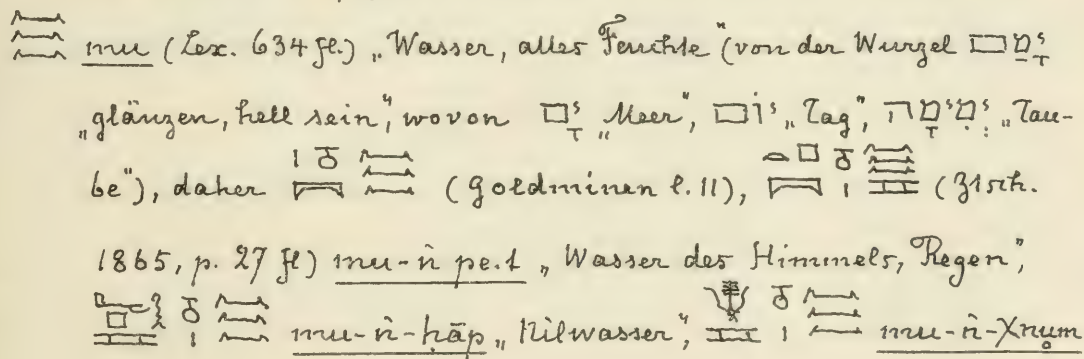 mu (Lex. 634 fl.) „Wasser, alles Feuchte" (von der Wurzel יָמַם
„glänzen, hell sein", wovon יָם „Meer", יוֹם „Tag", יְמִימָה „Tau-
be"), daher (Goldminen l. 11), (Ztsch.
1865, p. 27 fl) mu-ǹ pe.t „Wasser des Himmels, Regen",
mu-ǹ-ḥāp „Nilwasser", mu-ǹ-Xnum